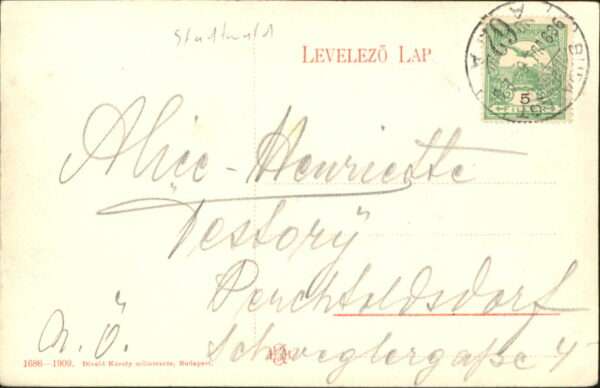 Stadtwald
LEVELEZŐ LAP
5
Alice-Henriette
Testory
Perchtoldsdorf
N. Ö.
Schweglergaße 4
1686—1909. Divald Károly műintézete, Budapest.